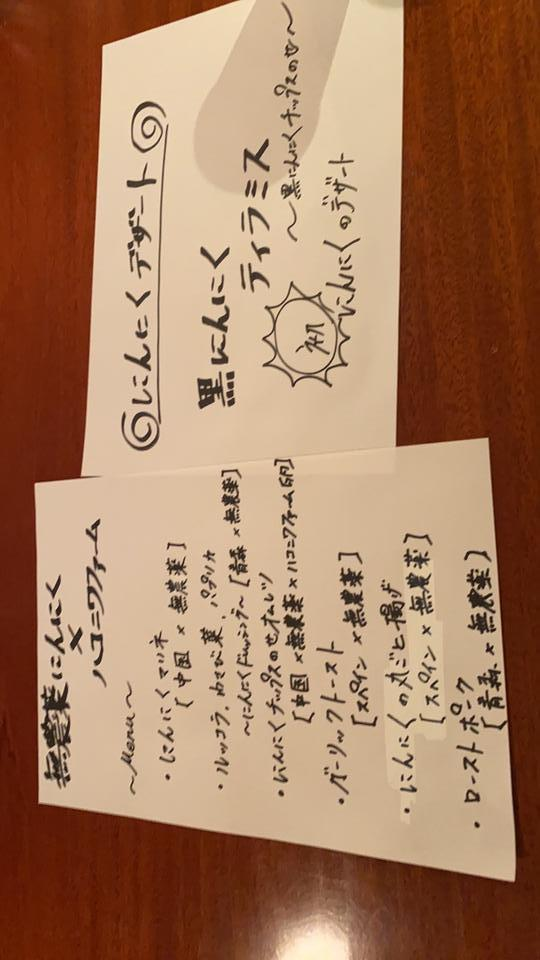 無農薬にんにく
×
ハコニワファーム
〜Menu〜
・にんにくマリネ
[中国 × 無農薬]
・ルッコラ、わさび菜、パプリカ
〜にんにくドレッシング〜 [青森 × 無農薬]
・にんにくチップスのせオムレツ
[中国 × 無農薬 × ハコニワファーム卵]
・ガーリックトースト
[スペイン × 無農薬]
・にんにくの丸ごと揚げ
[スペイン × 無農薬]
・ローストポーク
[青森 × 無農薬]
にんにくデザート
黒にんにく
ティラミス
〜黒にんにくチップスのせ〜
初
にんにくのデザート